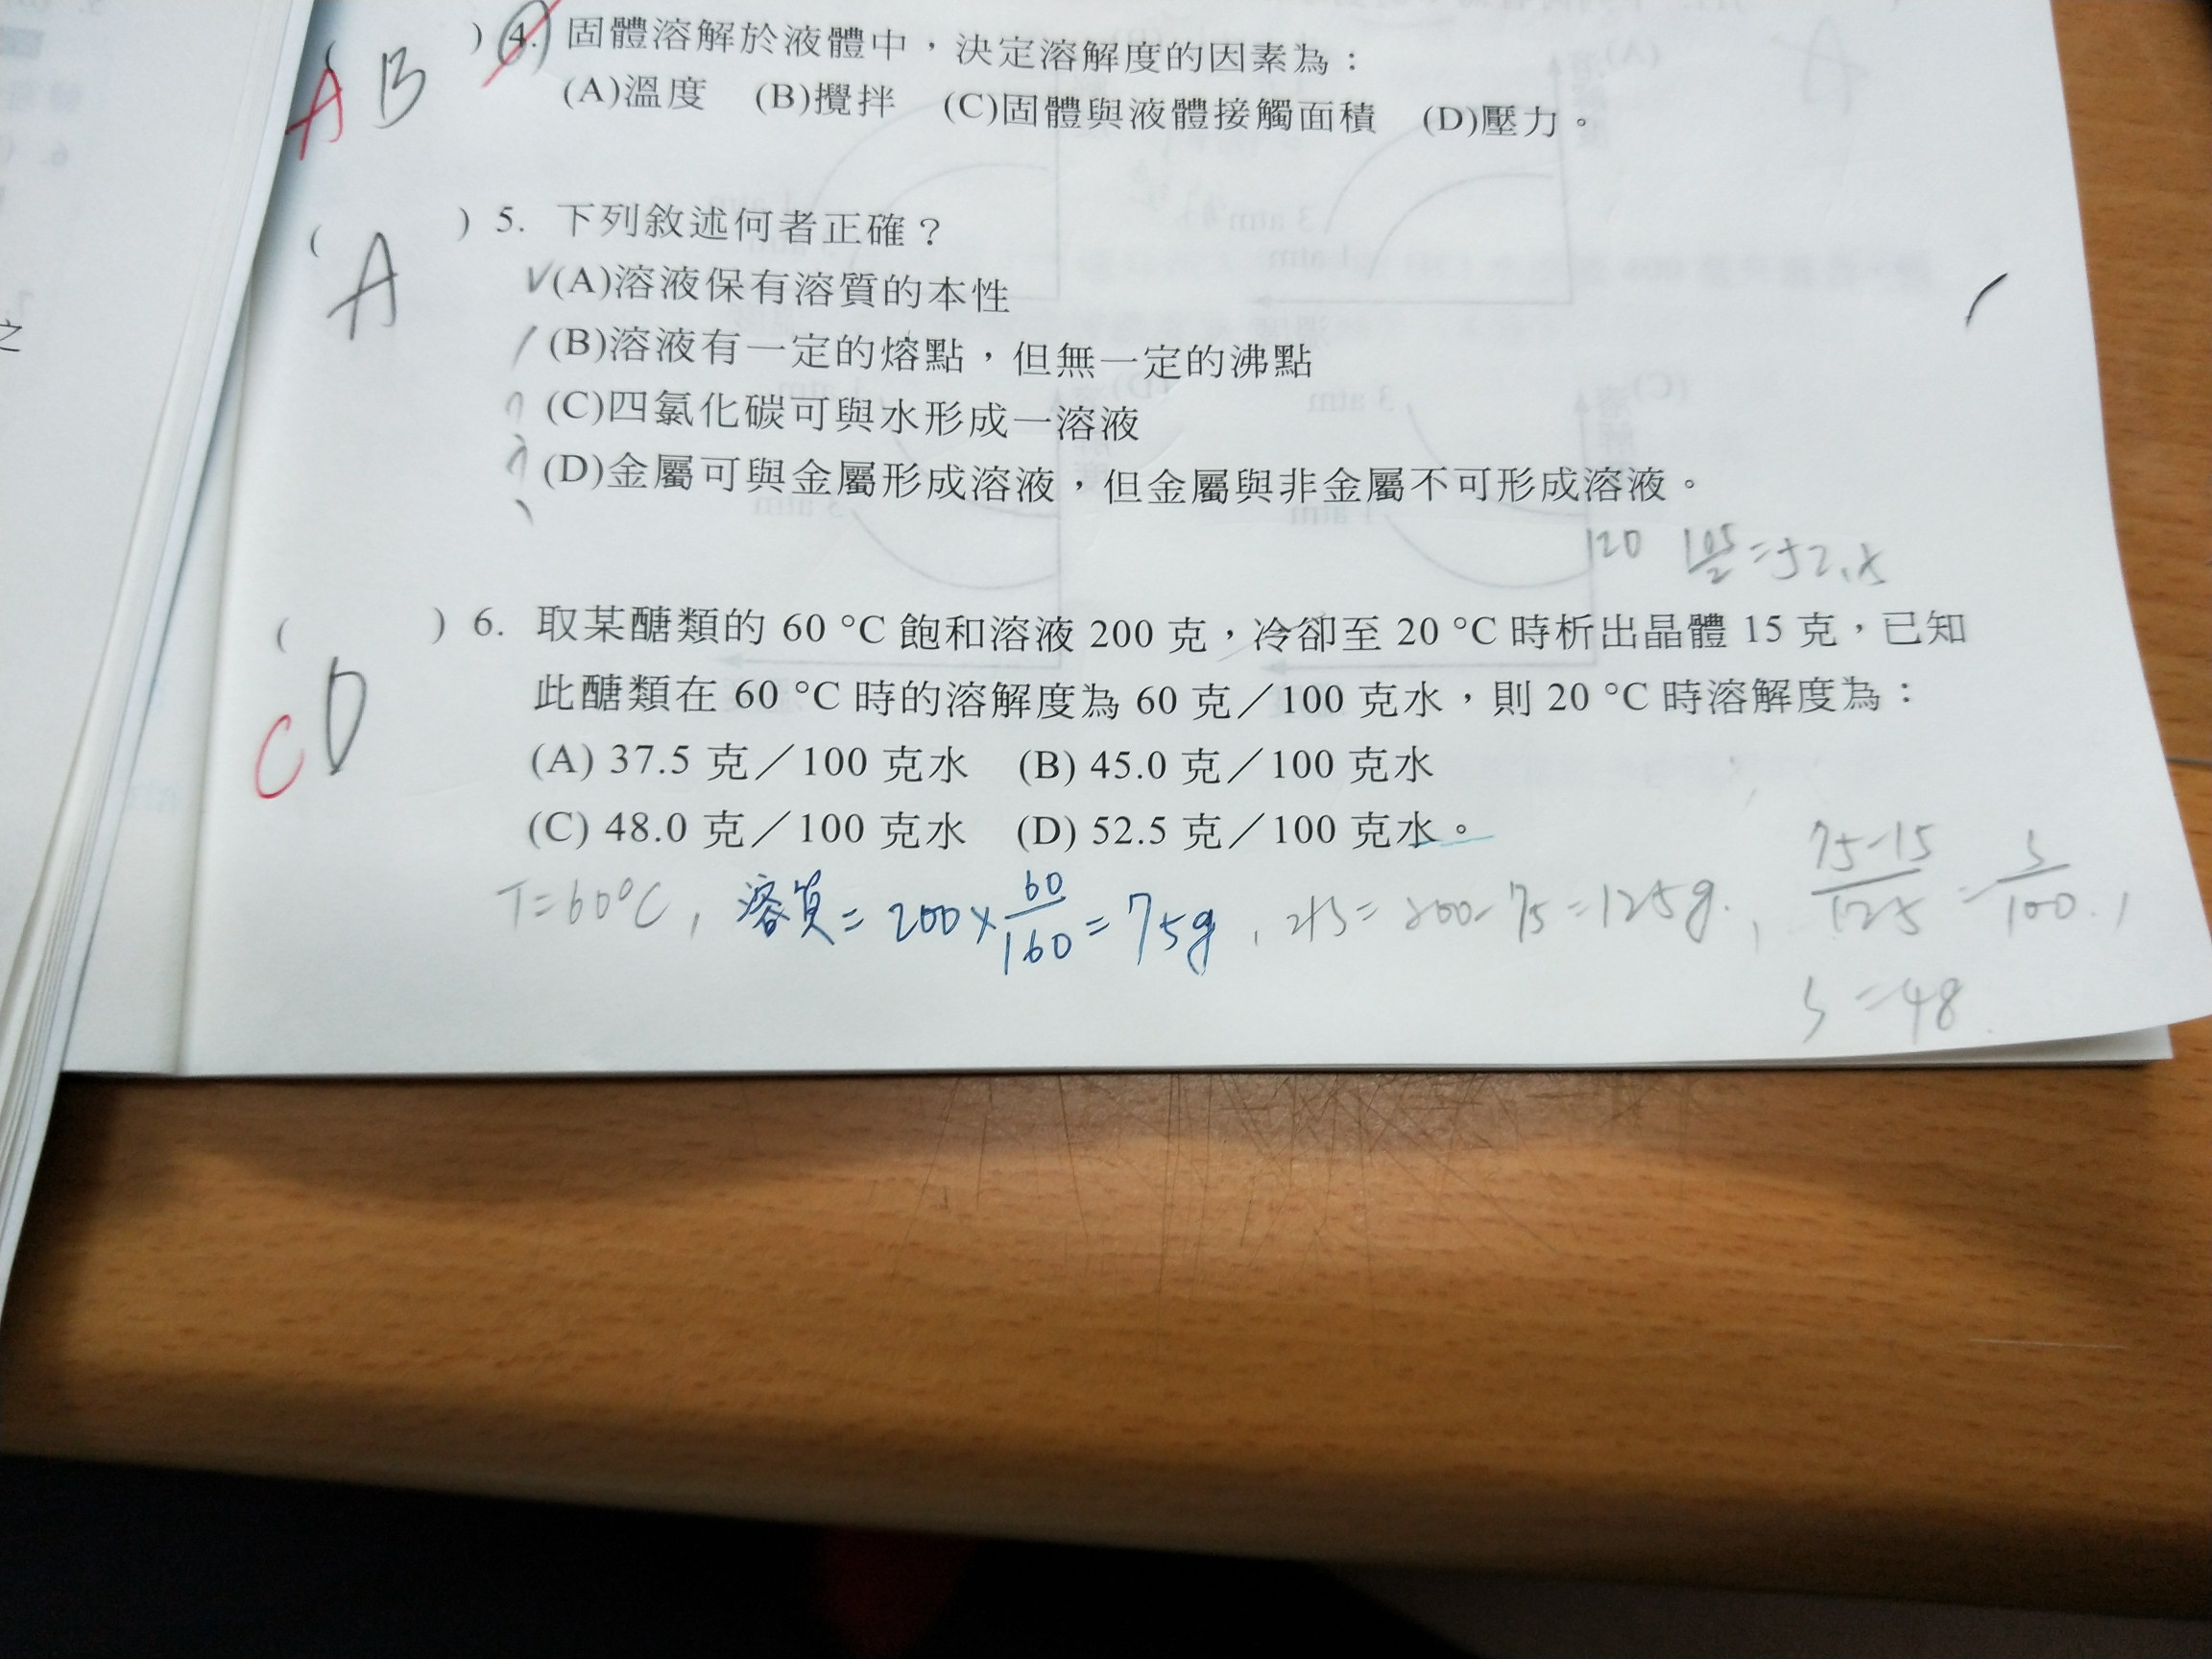 A B ) 4. 固體溶解於液體中，決定溶解度的因素為：
(A)溫度 (B)攪拌 (C)固體與液體接觸面積 (D)壓力。
( A ) 5. 下列敘述何者正確？
(A)溶液保有溶質的本性
(B)溶液有一定的熔點，但無一定的沸點
(C)四氯化碳可與水形成一溶液
(D)金屬可與金屬形成溶液，但金屬與非金屬不可形成溶液。
120 105/2=52.5
( C D ) 6. 取某醣類的 60 °C 飽和溶液 200 克，冷卻至 20 °C 時析出晶體 15 克，已知
此醣類在 60 °C 時的溶解度為 60 克／100 克水，則 20 °C 時溶解度為：
(A) 37.5 克／100 克水 (B) 45.0 克／100 克水
(C) 48.0 克／100 克水 (D) 52.5 克／100 克水。
T=60°C, 溶質=200×60/160=75g, 水=200-75=125g, 75-15/125=S/100,
S=48